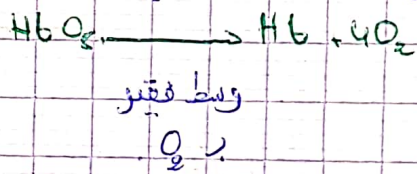 HbO₈ → Hb + 4O₂
وسط فقير
بـ O₂